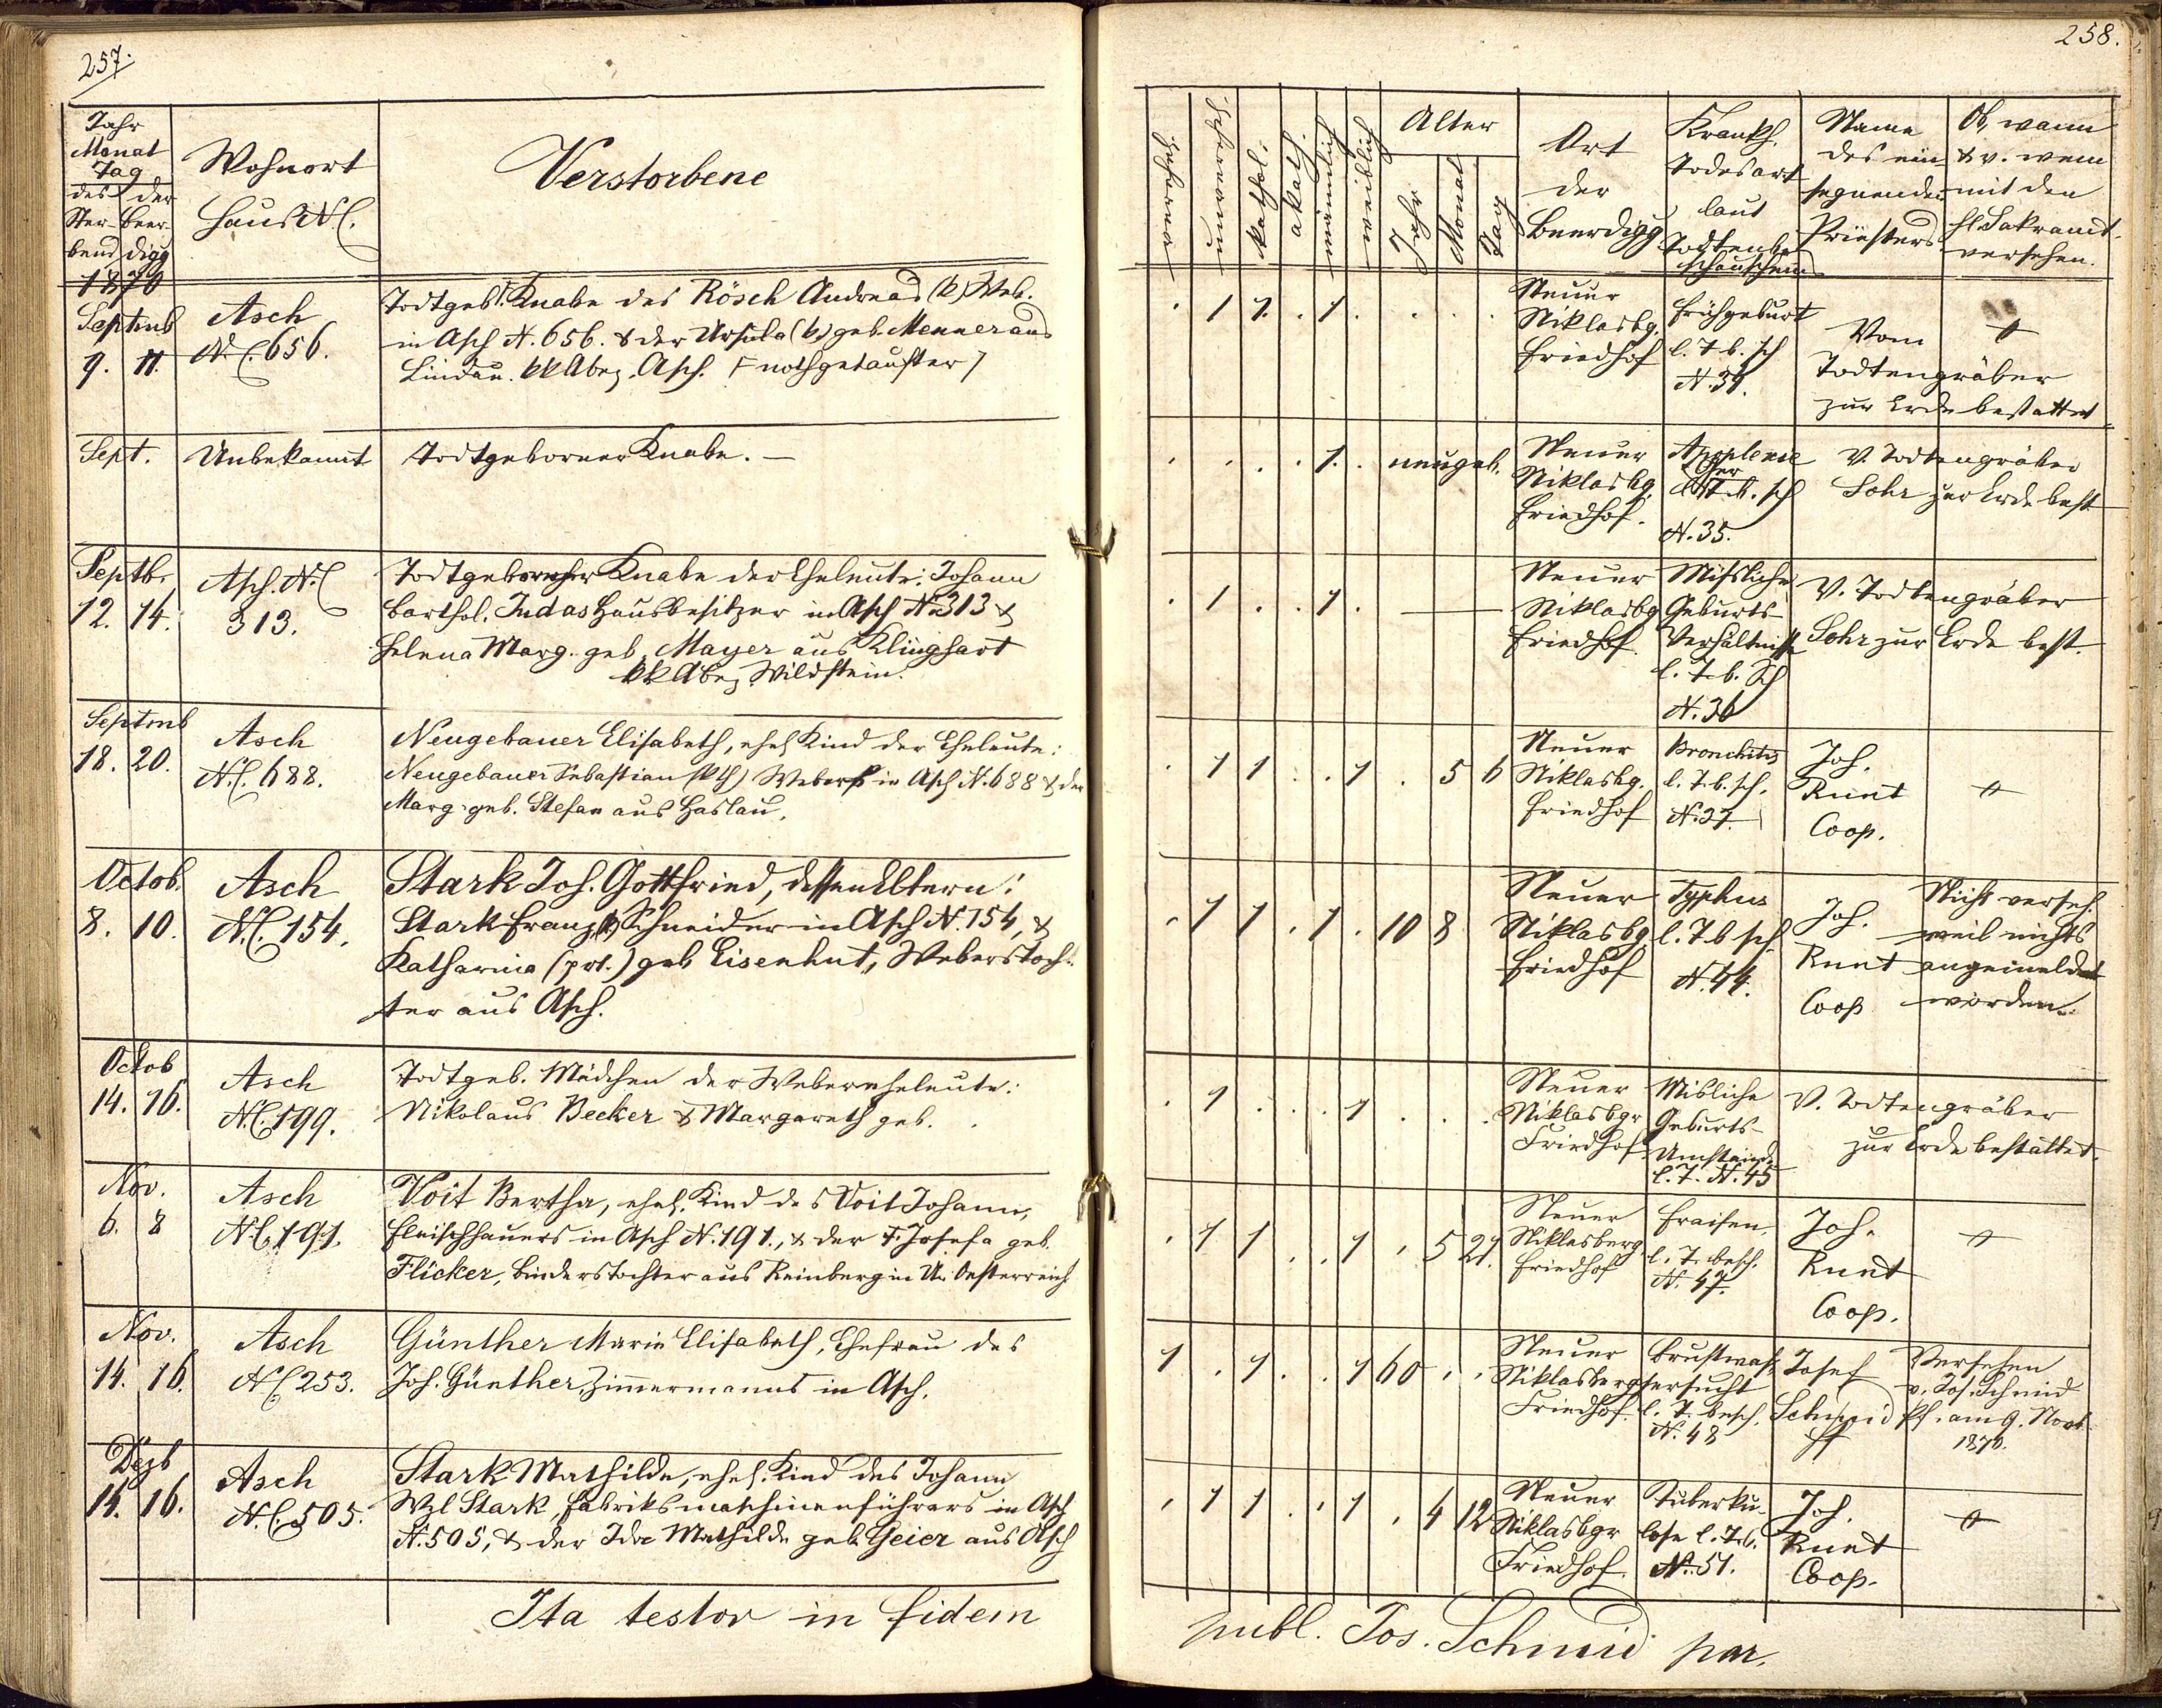 257.
Jahr
Monat
Tag
des der
Ster- Beer-
bend digg
Wohnort
Haus N.C.
Verstorbene
1870
Septmb
9. 11.
Asch
N.C. 656.
Todtgeb. Knabe des Rösch Andreas (k) Web.
in Asch N. 656. & der Ursula (k) geb. Menner aus
Lindau. kk Abez. Asch. nothgetaufter
Sept.
Unbekannt
Todtgeborner Knabe. —
Septb.
12. 14.
Asch. N.C
313.
Todtgeborner Knabe der Eheleute: Johann
Barthol. Judas Hausbesitzer in Asch N. 313 &
Helena Marg. geb. Mayer aus Klinghart
kk Abez Wildstein.
Septmb
18. 20.
Asch
N.C. 688.
Neugebauer Elisabeth, ehel Kind der Eheleute:
Neugebauer Sebastian (kth) Webers in Asch N. 688 & der
Marg. geb. Stefan aus Haslau.
Octob.
8. 10.
Asch
N.C. 154.
Stark Joh. Gottfried, dessen Eltern:
Stark Franz (k) Schneider in Asch N. 154, &
Katharina (prt.) geb Eisenhut, Weberstoch-
ter aus Asch.
Octob
14. 16.
Asch
N.C. 199.
Todtgeb. Mädchen der Webereheleute:
Nikolaus Becker & Margareth geb. .
Nov.
6. 8
Asch
N.C. 191.
Voit Bertha, ehel. Kind des Voit Johann,
Fleischhauers in Asch N. 191., & der Josefa geb.
Flicker, Binderstochter aus Reinberg in Un. Oesterreich
Nov.
14. 16.
Asch
N.C 253.
Günther Marie Elisabeth, Ehefrau des
Joh. Günther, Zimmermanns in Asch.
Dezb
14. 16.
Asch
N.C. 505.
Stark Mathilde, ehel. Kind des Johann
Wzl Stark, Fabriksmaschinenführers in Asch
N. 505, & der Ida Mathilde geb. Geier aus Asch
Ita testor in fidem
258.
männlich
weiblich
kathol.
akath.
Alter
Jahr
Monat
Tag
Ort
der
Beerdigg
Krankh.
Todesart
laut
Todtenbe
schauschein
Name
des ein
segnenden
Priesters
Ob, wann
& v. wem
mit den
hl. Sakramt.
versehen.
. 1 1. . 1 . . . .
Neuer
Niklasbg.
Friedhof
Frühgeburt
l. T. b. sch
N. 34.
Vom
Todtengräber
zur Erde bestattet
. . . . 1. . neugeb.
Neuer
Niklasbg.
Friedhof.
Apoplexie
N. 35.
V. Todtengräber
Lohr zur Erde best
. 1 . . 1 . —
Neuer
Niklasbg
Friedhof
Missliche
Geburts-
Verhältnisse
l. T. b. Sch
N. 36
V. Todtengräber
Lohr zur Erde best.
. 1 1 . . 1 . 5 6
Neuer
Niklasbg.
Friedhof
Bronchitis
l. T. b. sch.
N. 37.
Joh.
Runt
Coop.
. 1 1 . 1 . 10 8
Neuer
Niklasbg
Friedhof
Typhus
l. T b sch
N. 44.
Joh.
Runt
Coop
Nicht verseh.
weil nichts
angemeldet
worden.
. 1 . . . 1 . . .
Neuer
Niklasbgr
Friedhof
Misliche
Geburts-
Umstände
l. T. N. 45
V. Todtengräber
zur Erde bestattet.
. 1 1 . . 1 . 5 21.
Neuer
Niklasberg
Friedhof
Fraisen.
l. T. besch.
N. 47.
Joh.
Runt
Coop.
1 . 1 . . 1 60 . .
Neuer
Niklasberg
Friedhof.
Brustwas-
sersucht
l. T. besch.
N. 48
Josef
Schmid
Pf
Versehen
v. Jos. Schmid
Pf. am 9. Novb.
1870.
. 1 1 . . 1 . 4 12
Neuer
Niklasbgr
Friedhof.
Tuberku-
lose l. T. b.
N. 51.
Joh.
Runt
Coop.
publ. Jos. Schmid par.